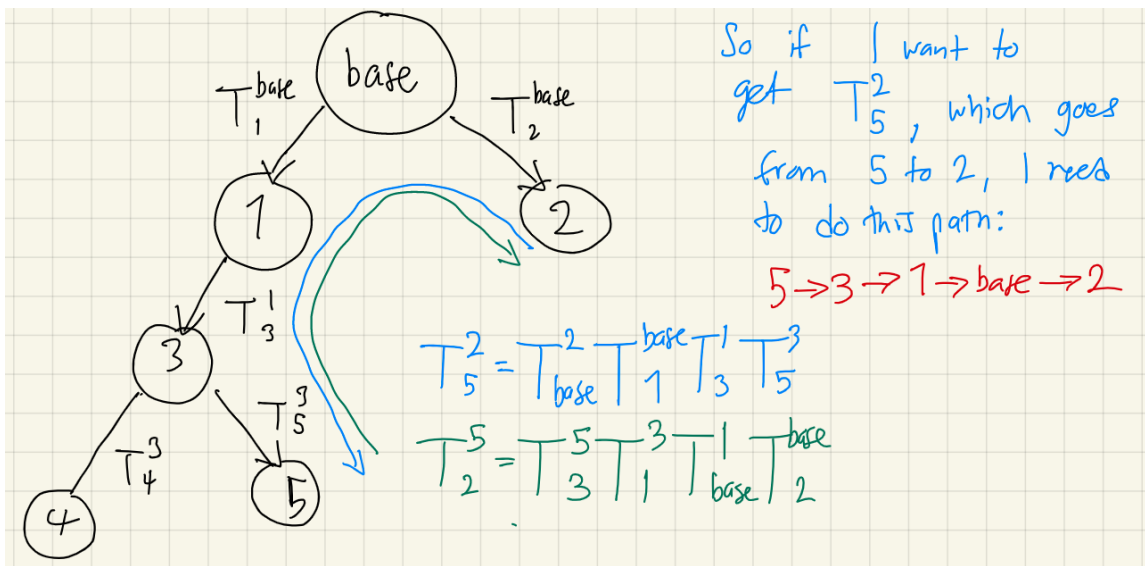 base
T₁^base
T₂^base
1
2
T₃^1
3
T₄^3
T₅^3
4
5
So if I want to
get T₅^2, which goes
from 5 to 2, I need
to do this path:
5→3→1→base→2
T₅^2 = T_base^2 T₁^base T₃^1 T₅^3
T₂^5 = T₃^5 T₁^3 T_base^1 T₂^base